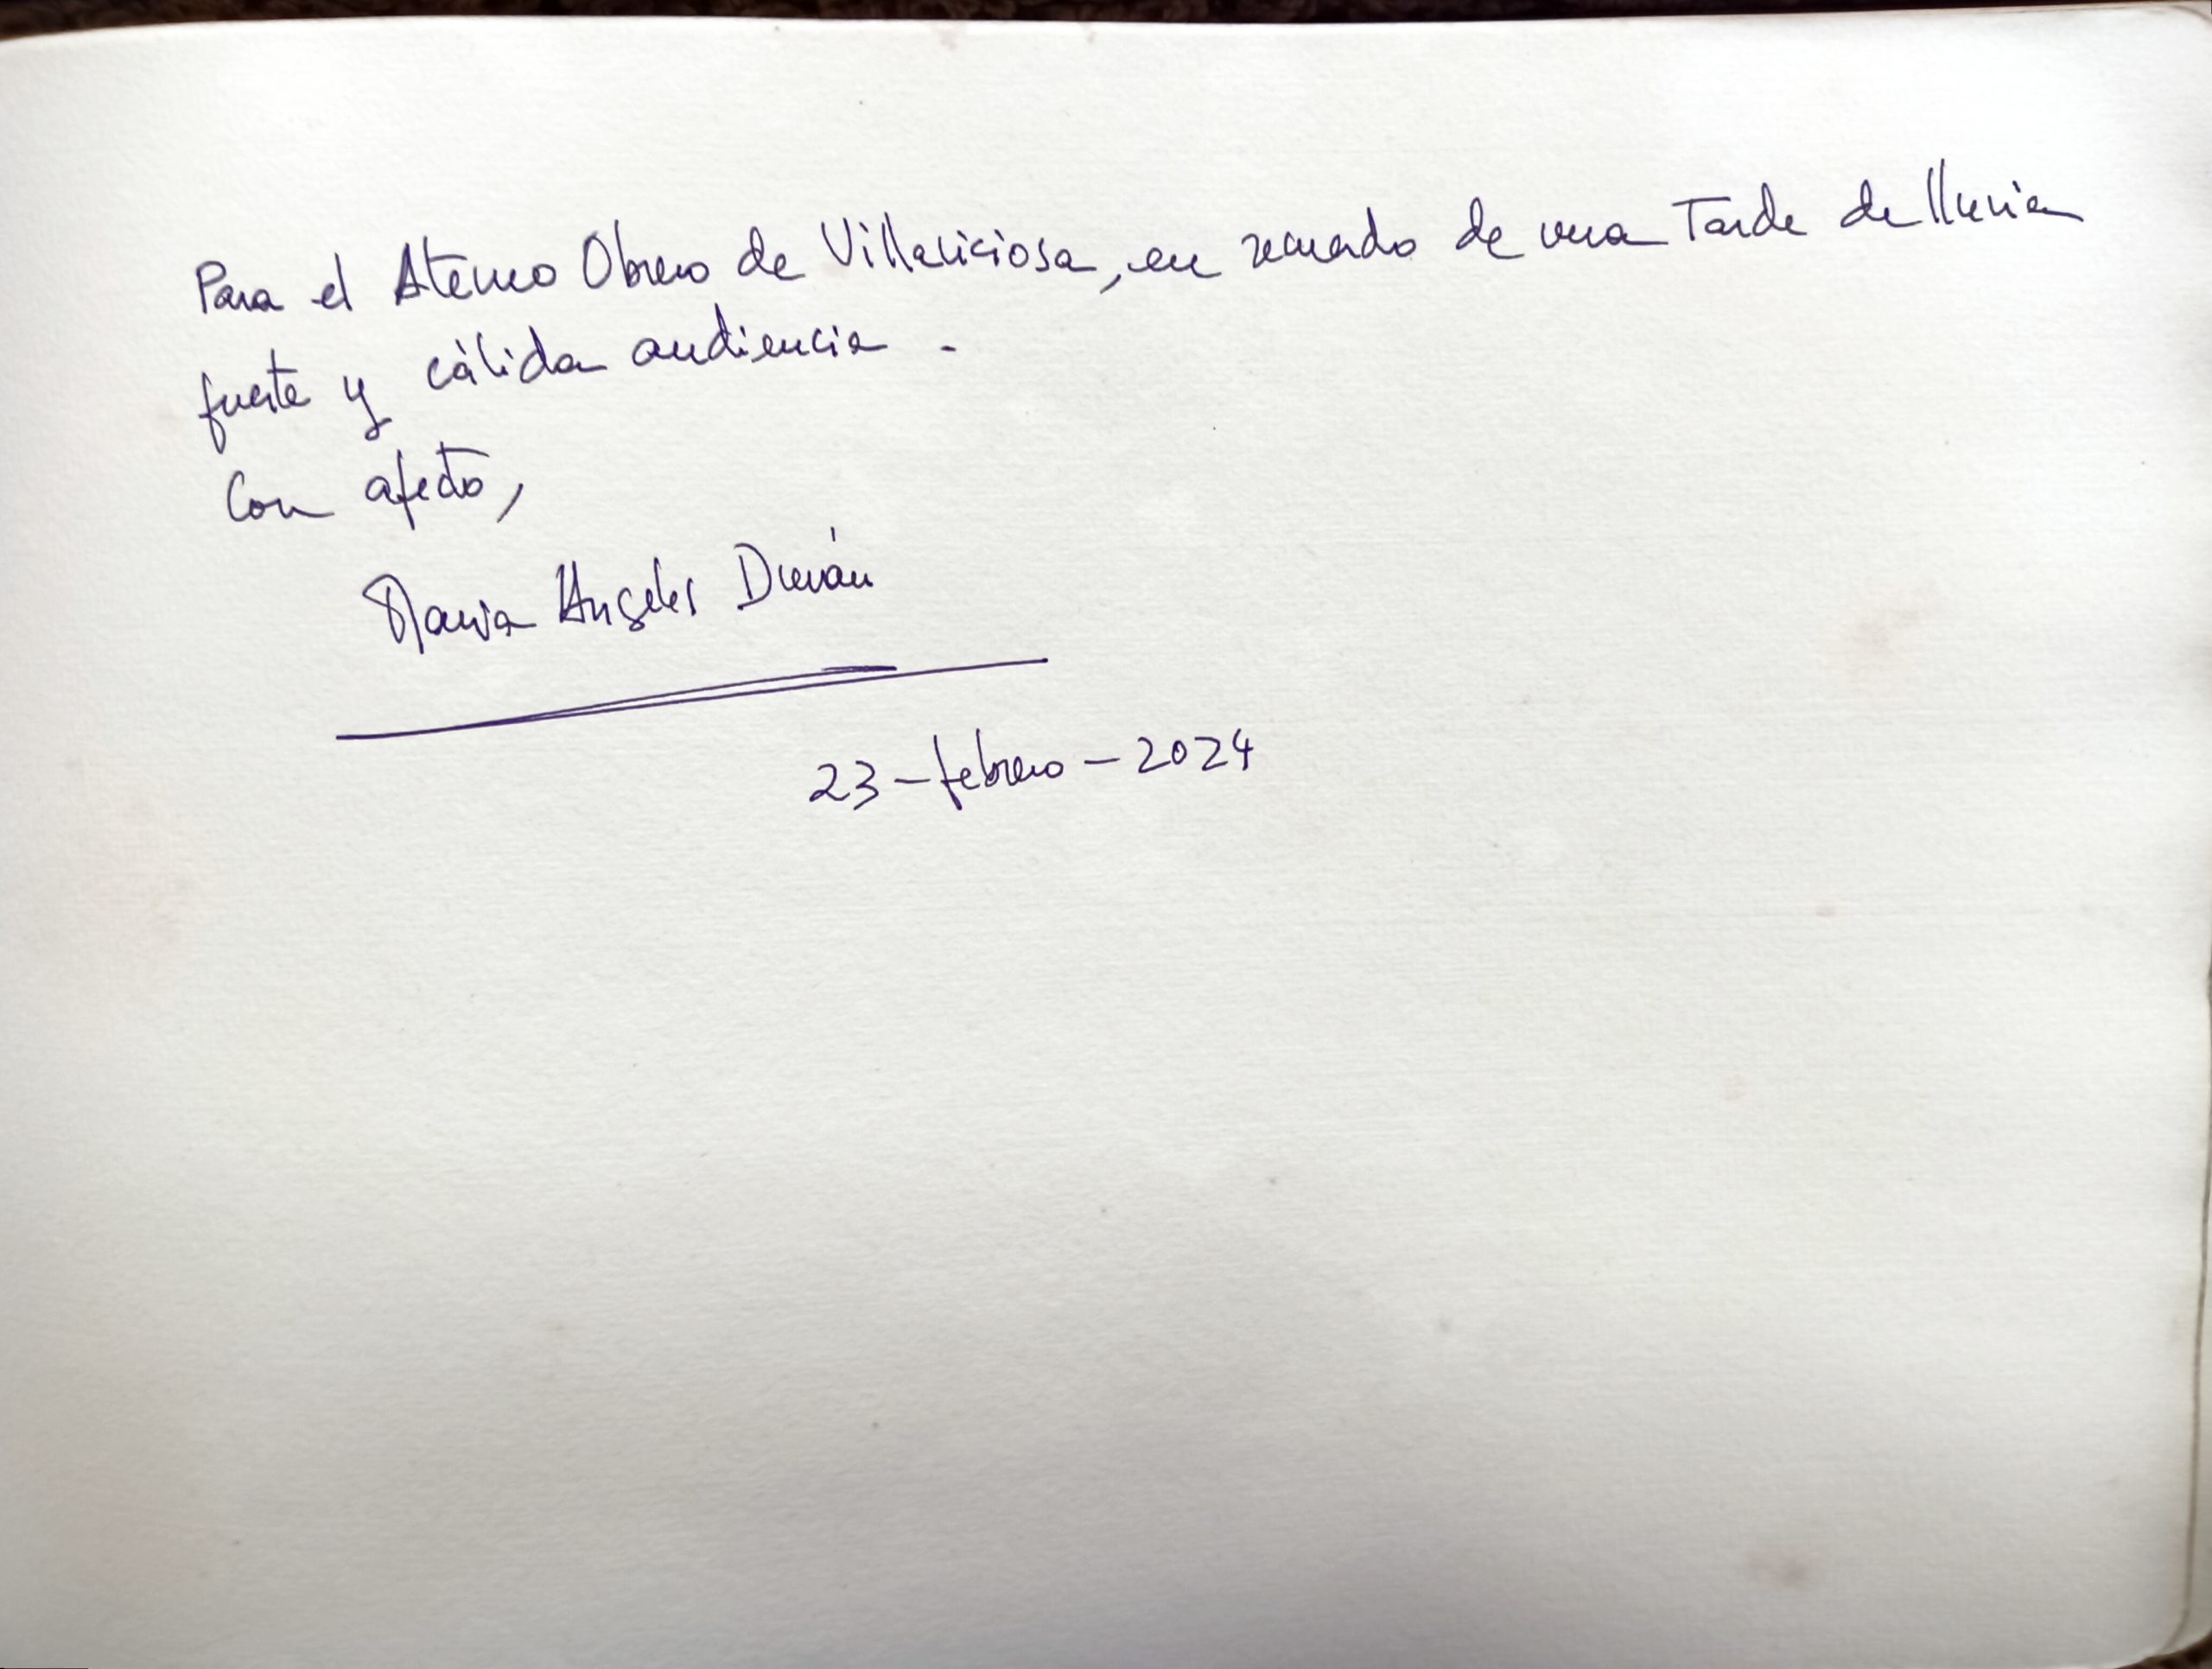 Para el Ateneo Obrero de Villaviciosa, en recuerdo de una Tarde de lluvia
fuerte y cálida audiencia.
Con afecto,
Maria Angeles Durán
23-febrero-2024